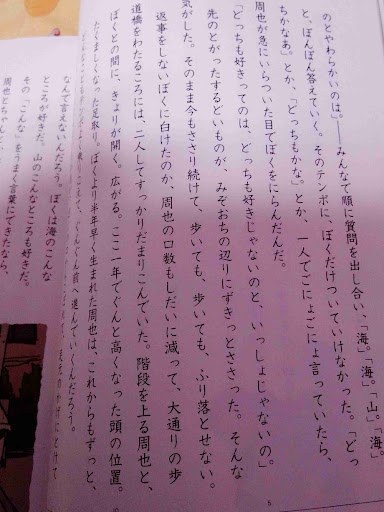 のとやわらかいのは。」――みんなで順に質問を出し合い、「海。」「海。」「山。」「海。」
と、ぽんぽん答えていく。そのテンポに、ぼくだけついていけなかった。「どっ
ちかなあ。」とか、「どっちもかな。」とか、一人でごにょごにょ言っていたら、
周也が急にいらついた目でぼくをにらんだんだ。
「どっちも好きってのは、どっちも好きじゃないのと、いっしょじゃないの。」
先のとがったするどいものが、みぞおちの辺りにずきっとささった。そんな
気がした。そのまま今もささり続けて、歩いても、歩いても、ふり落とせない。
返事をしないぼくに白けたのか、周也の口数もしだいに減って、大通りの歩
道橋をわたるころには、二人してすっかりだまりこんでいた。階段を上る周也と、
ぼくとの間に、きょりが開く。広がる。ここ一年でぐんと高くなった頭の位置。
たくましくなった足取り。ぼくより半年早く生まれた周也は、これからもずっと、
ぐんぐん前へ進んでいくんだろう。
なんて言えないんだろう。ぼくは海のこんな
ところが好きだ。山のこんなところも好きだ。
その「こんな」をうまく言葉にできたなら、
周也とちゃんと
6